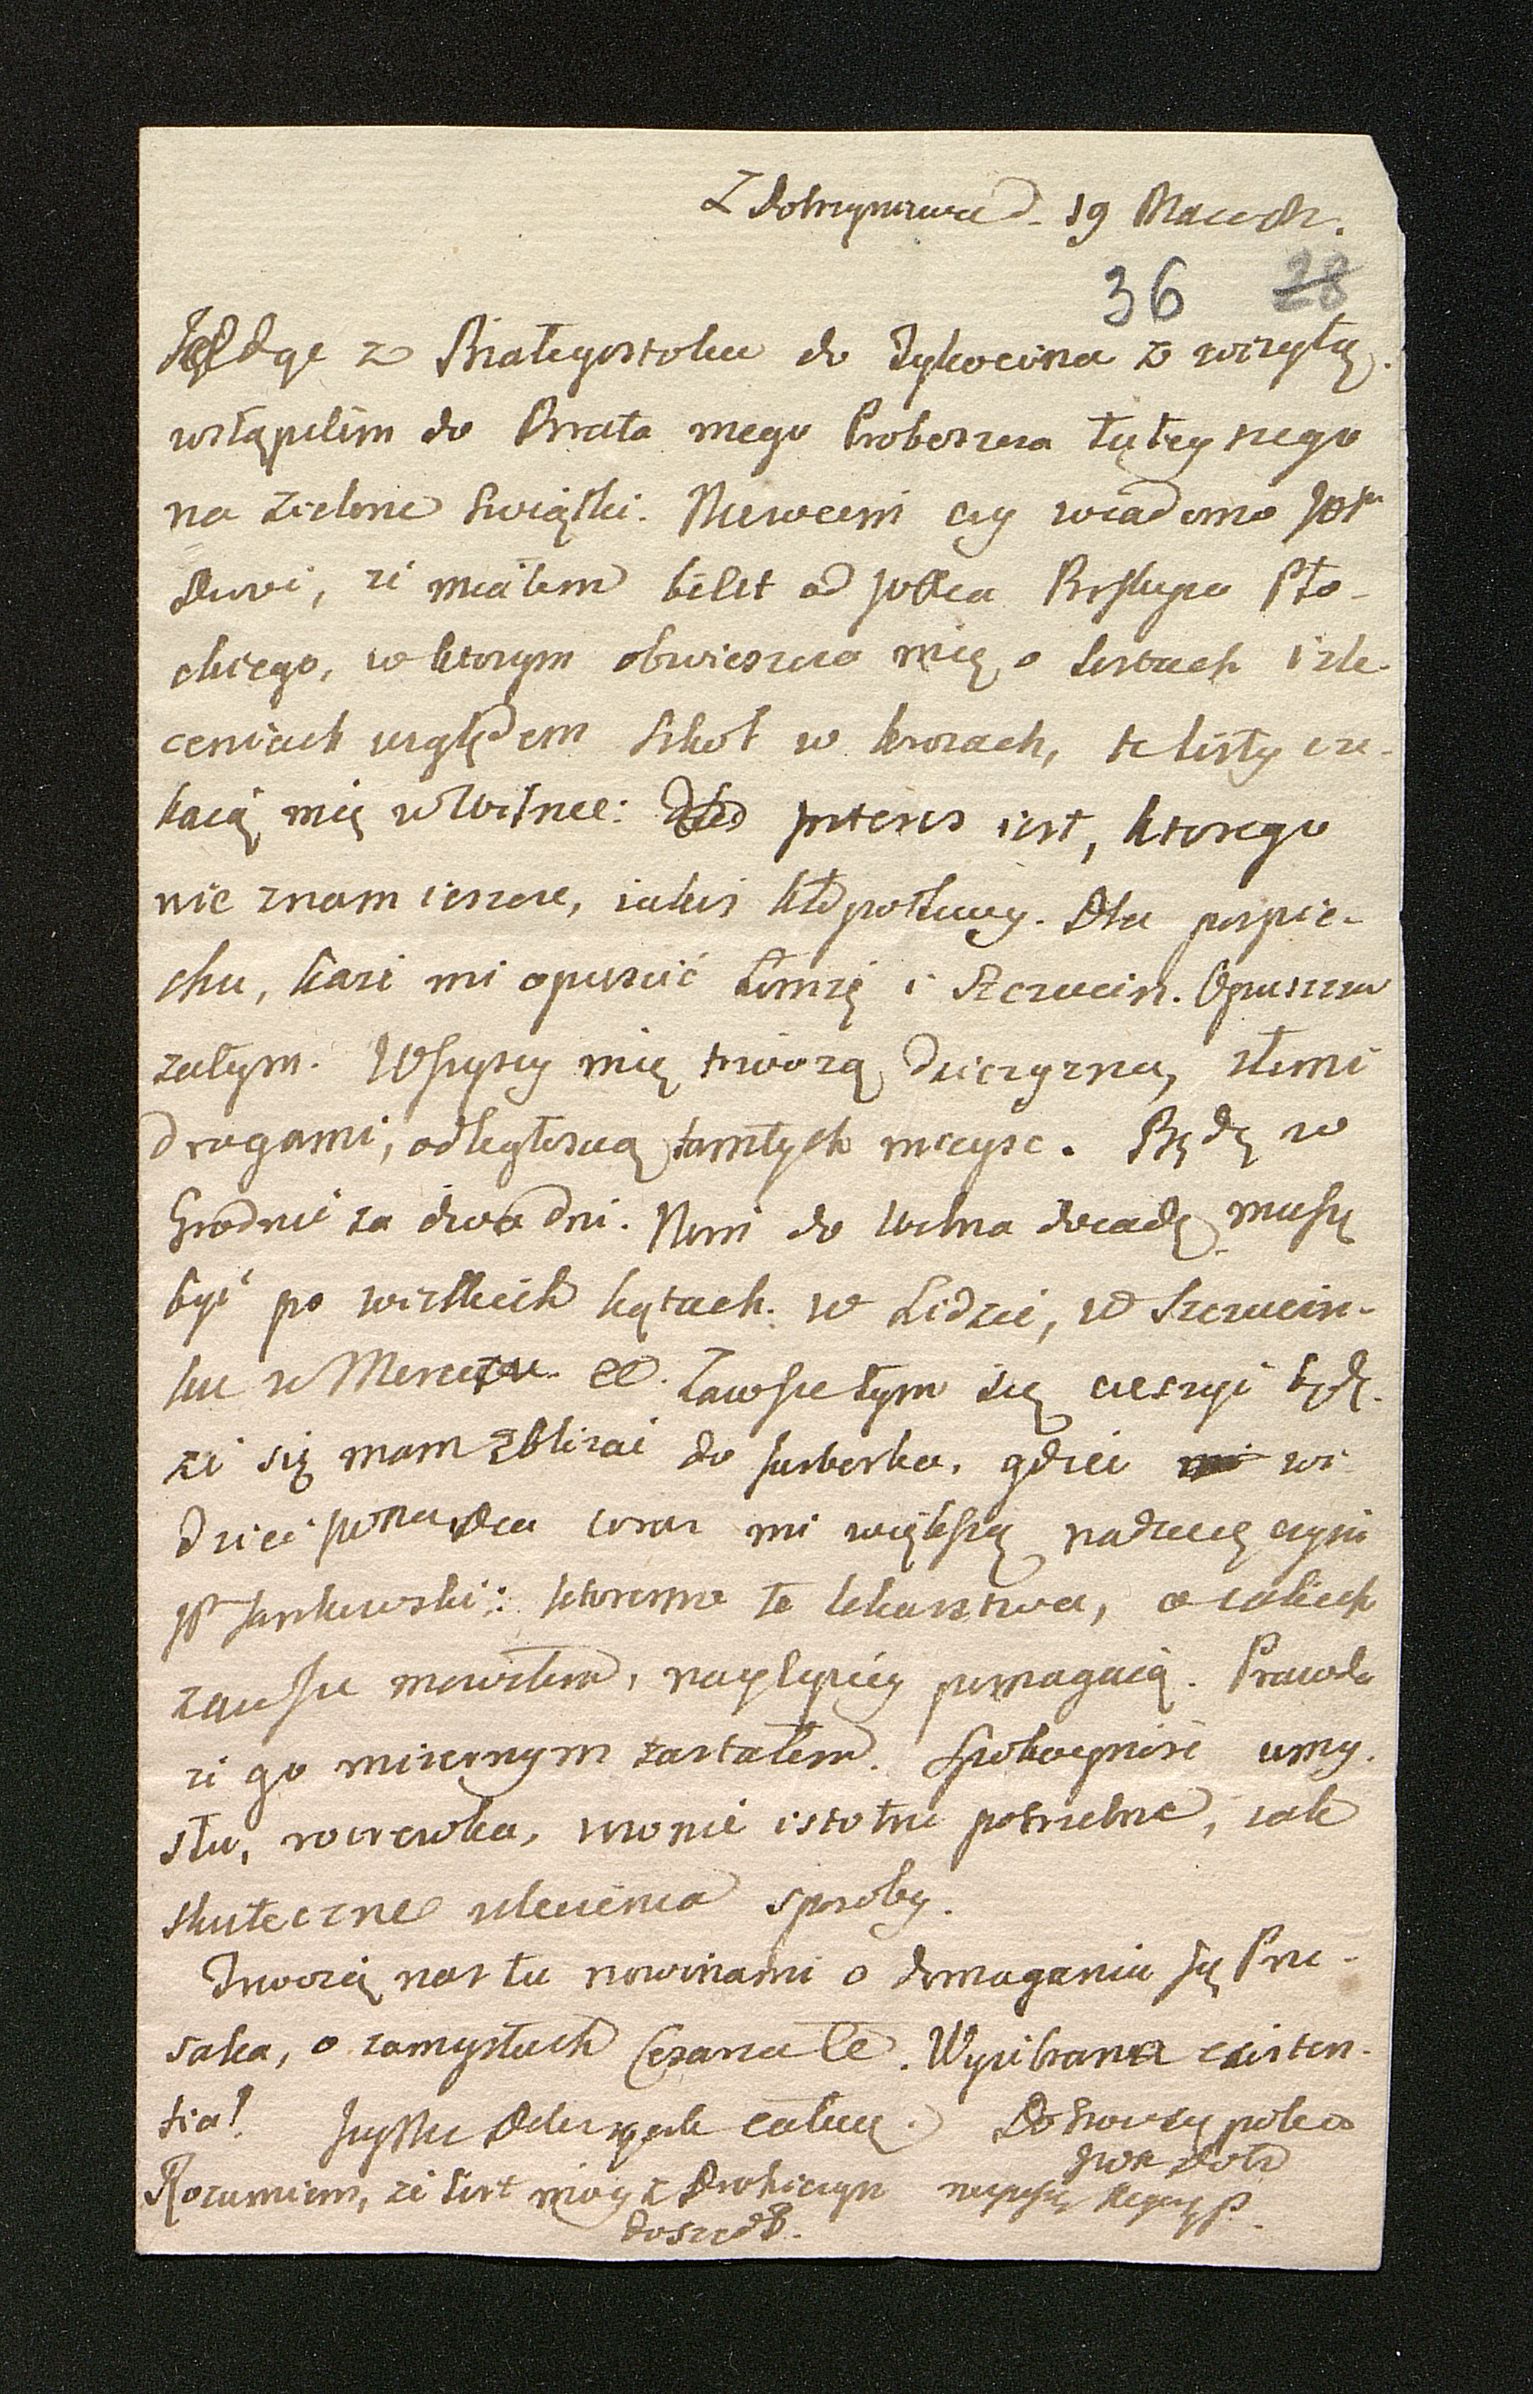 Z Dobrzyniewa d. 19 Maia
36 28
Jadąc z Białegostoku do Tykocina z wizytą.
wstąpiłem do Brata mego Proboszcza tuteysnego
na zielone Swiątki. Niewiem czy wiadomo JWP
Dwi, zi miałem bilet od JWXcia Biskupa Pło-
ckiego, w ktorym obwieszcza mię o listach i zle-
ceniach względem Szkoł w krozach, te listy cze-
kaią mię w Wilnie: interes iest, ktorego
nie znam ieszcze, iakis kłopotliwy. Dla pospie-
chu, każe mi opuscić Łomżę i Szczucin. Opuszczam
zatym. Wszyscy mię trwożą dziczyzną, złemi
drogami, odległoscią tamtych mieysc. Będę w
Grodnie za dwa dni. Nim do Wilna doiadę muszę
być po wszelkich kątach. w Lidzie, w Szczucin-
ku w Mereczu &. Zawsze tym się cieszyć będę.
zi się mam zbliżać do Jurborka, gdzie wi-
dzieć JWPana Dza coraz mi większą nadzieię czyni
JP Jankowski: ktoremu te lekarstwa, o iakich
zawsze mowiłem, naylepiey pomagaią. Prawda
zi go mizernym zastałem. Spokoyność umy-
słu, rozrywka, rownie istotnie potrzebne, iak
skuteczne uleczenia sposoby.
Trwożą nas tu nowinami o domaganiu się Pru-
saka, o zamysłach Cesarza &. Wyżebrana existen-
tia! całuię.
Rozumiem, zi list moy z Drohiczyn
doszedł.